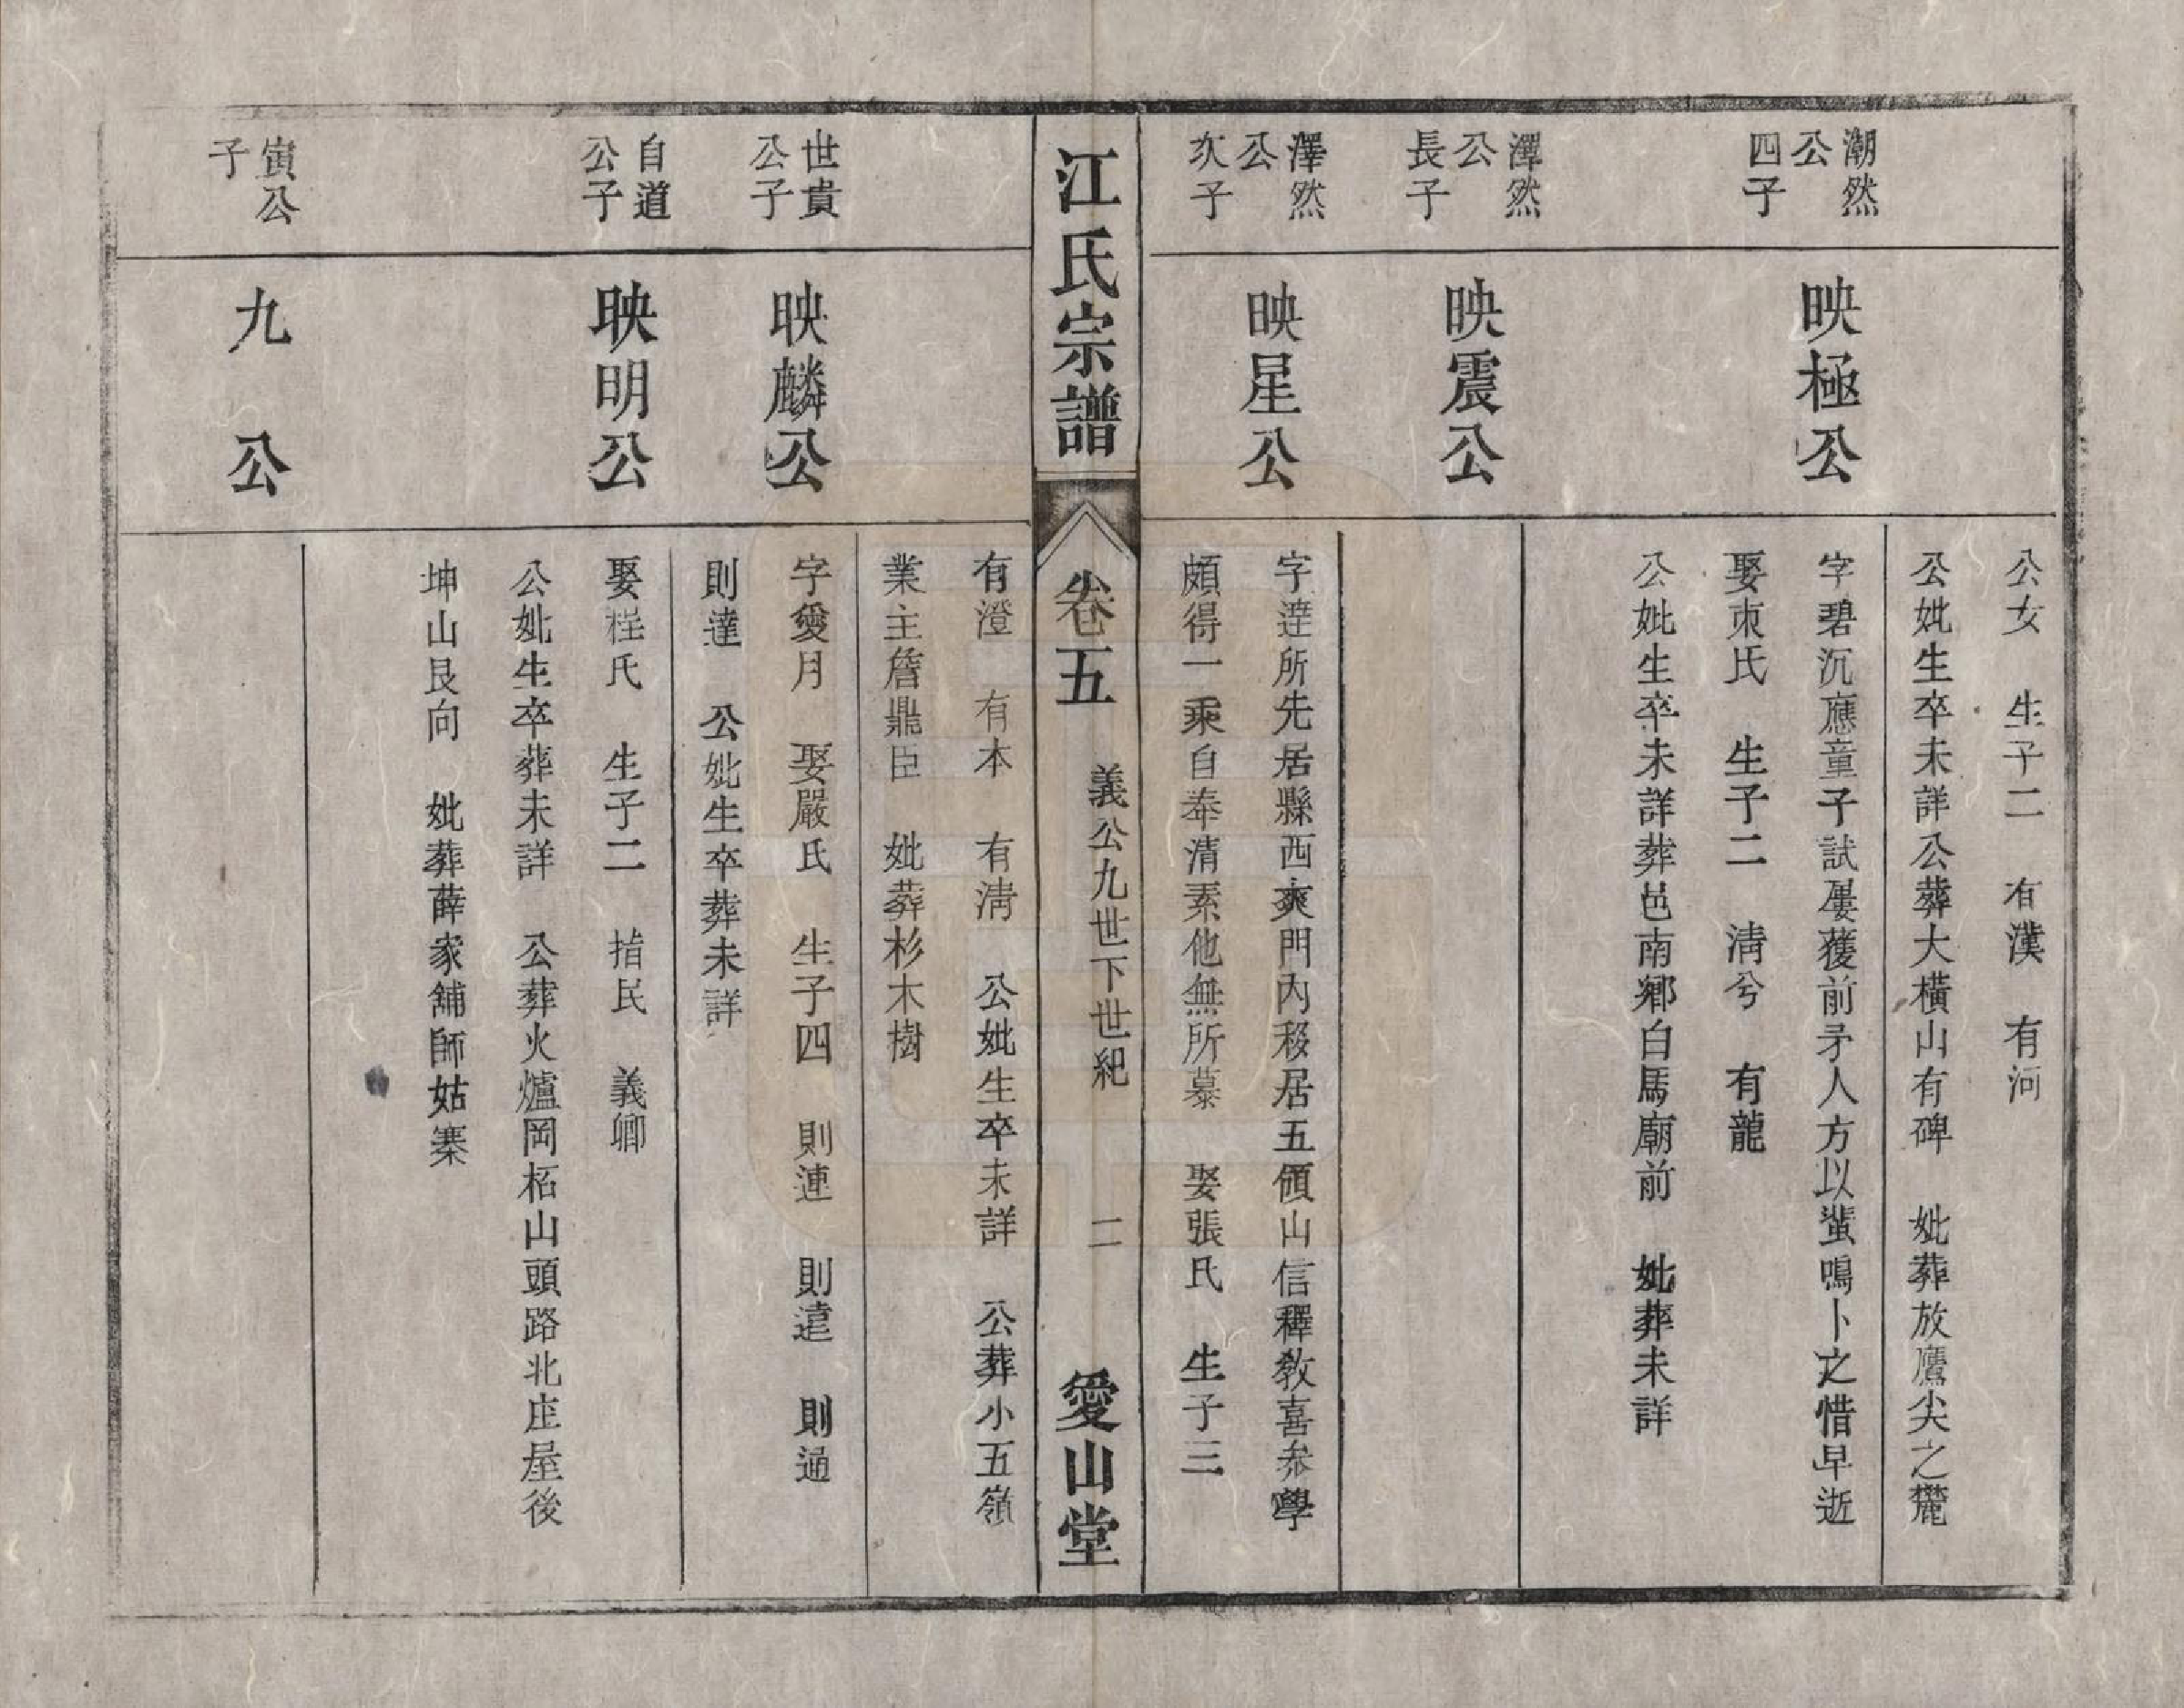 公女　生子二　有漢　有河
公妣生卒未詳公葬大橫山有碑　妣葬放鷹尖之麓
潮然
公
四子
映極公
字碧沉應童子試屢獲前矛人方以蜚鳴卜之惜早逝
娶東氏　生子二　淸兮　有龍
公妣生卒未詳葬邑南鄉白馬廟前　妣葬未詳
澤然
公
長子
映震公
澤然
公
次子
映星公
字達所先居縣西爽門內移居五傾山信釋敎喜叅學
頗得一乘自奉清素他無所慕　娶張氏　生子三
江氏宗譜
卷五　義公九世下世紀　二　愛山堂
有澄　有本　有淸　公妣生卒未詳　公葬小五嶺
業主詹鼎臣　妣葬杉木樹
世貴
公子
映麟公
字愛月　娶嚴氏　生子四　則連　則遠　則通
則達　公妣生卒葬未詳
自道
公子
映明公
娶程氏　生子二　指民　義卿
公妣生卒葬未詳　公葬火爐岡柘山頭路北庄屋後
坤山艮向　妣葬薛家舖師姑寨
寅公
子
九公